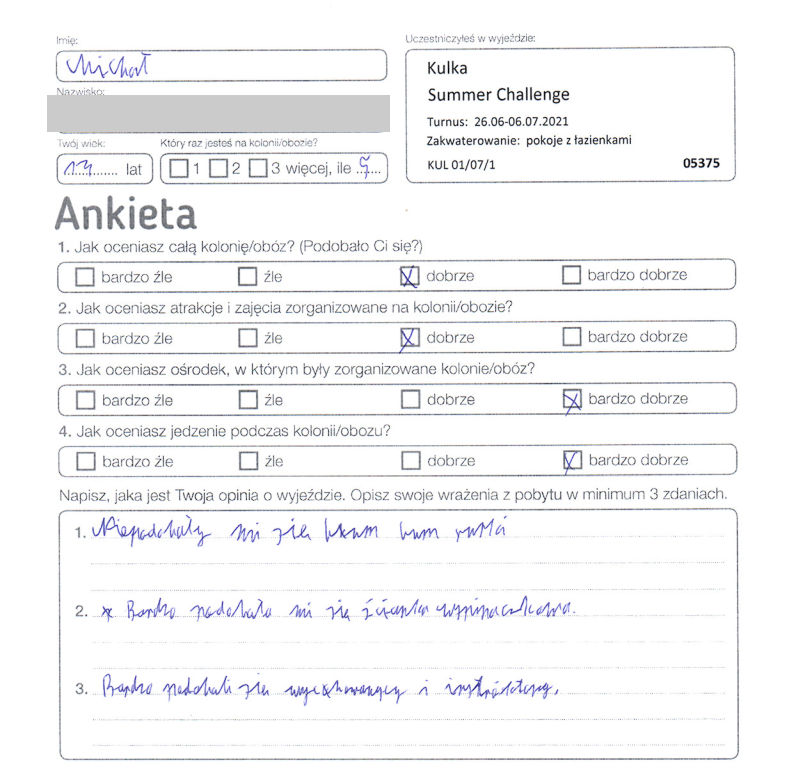 Imię:
Michał
Uczestniczyłeś w wyjeździe:
Kulka
Summer Challenge
Turnus: 26.06-06.07.2021
Zakwaterowanie: pokoje z łazienkami
KUL 01/07/1 05375
Nazwisko:
Twój wiek:
13 lat
Który raz jesteś na kolonii/obozie?
1 2 3 więcej, ile 5
Ankieta
1. Jak oceniasz całą kolonię/obóz? (Podobało Ci się?)
bardzo źle źle dobrze bardzo dobrze
2. Jak oceniasz atrakcje i zajęcia zorganizowane na kolonii/obozie?
bardzo źle źle dobrze bardzo dobrze
3. Jak oceniasz ośrodek, w którym były zorganizowane kolonie/obóz?
bardzo źle źle dobrze bardzo dobrze
4. Jak oceniasz jedzenie podczas kolonii/obozu?
bardzo źle źle dobrze bardzo dobrze
Napisz, jaka jest Twoja opinia o wyjeździe. Opisz swoje wrażenia z pobytu w minimum 3 zdaniach.
1. Niepodobały mi się bum
2. Bardzo podobała mi się ścianka wspinaczkowa.
3. Bardzo podobali się wychowawcy i instruktorzy.